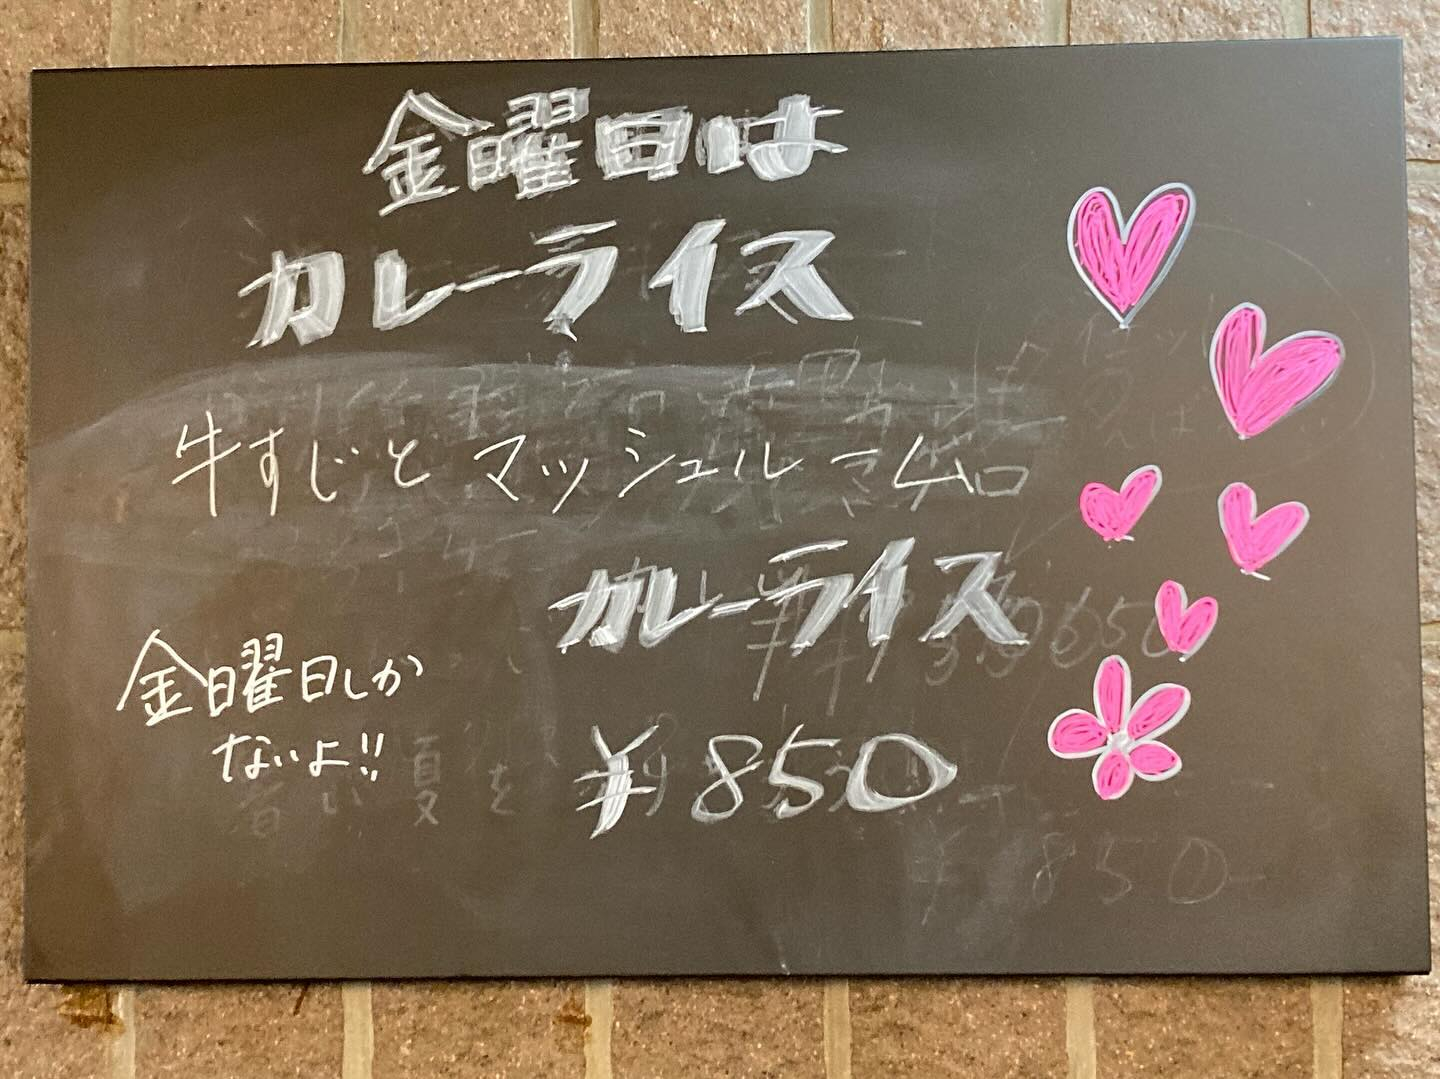 金曜日は
カレーライス
牛すじとマッシュルーム
カレーライス
金曜日しか
ないよ!!
¥850
¥850